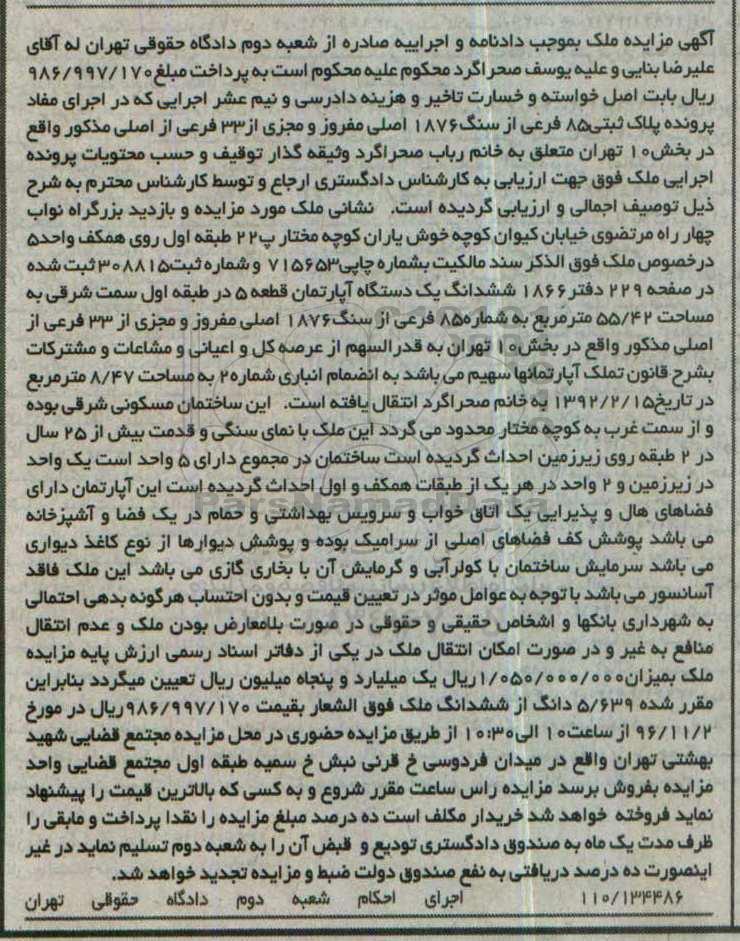 آگهی مزایده ملک بموجب دادنامه و اجراییه صادره از شعبه دوم دادگاه حقوقی تهران له آقای
علیرضا بنایی و علیه یوسف صحراگرد محکوم علیه محکوم است به پرداخت مبلغ ۹۸۶/۹۹۷/۱۷۰
ریال بابت اصل خواسته و خسارت تاخیر و هزینه دادرسی و نیم عشر اجرایی که در اجرای مفاد
پرونده پلاک ثبتی ۸۵ فرعی از سنگ ۱۸۷۶ اصلی مفروز و مجزی از ۳۳ فرعی از اصلی مذکور واقع
در بخش ۱۰ تهران متعلق به خانم رباب صحراگرد وثیقه گذار توقیف و حسب محتویات پرونده
اجرایی ملک فوق جهت ارزیابی به کارشناس دادگستری ارجاع و توسط کارشناس محترم به شرح
ذیل توصیف اجمالی و ارزیابی گردیده است. نشانی ملک مورد مزایده و بازدید بزرگراه نواب
چهار راه مرتضوی خیابان کیوان کوچه خوش یاران کوچه مختار پ ۲۲ طبقه اول روی همکف واحد ۵
درخصوص ملک فوق الذکر سند مالکیت بشماره چاپی ۷۱۵۶۵۳ و شماره ثبت ۳۰۸۸۱۵ ثبت شده
در صفحه ۲۲۹ دفتر ۱۸۶۶ ششدانگ یک دستگاه آپارتمان قطعه ۵ در طبقه اول سمت شرقی به
مساحت ۵۵/۴۲ مترمربع به شماره ۸۵ فرعی از سنگ ۱۸۷۶ اصلی مفروز و مجزی از ۳۳ فرعی از
اصلی مذکور واقع در بخش ۱۰ تهران به قدرالسهم از عرصه کل و اعیانی و مشاعات و مشترکات
بشرح قانون تملک آپارتمانها سهیم می باشد به انضمام انباری شماره ۲ به مساحت ۸/۴۷ مترمربع
در تاریخ ۱۳۹۲/۲/۱۵ به خانم صحراگرد انتقال یافته است. این ساختمان مسکونی شرقی بوده
و از سمت غرب به کوچه مختار محدود می گردد این ملک با نمای سنگی و قدمت بیش از ۲۵ سال
در ۲ طبقه روی زیرزمین احداث گردیده است ساختمان در مجموع دارای ۵ واحد است یک واحد
در زیرزمین و ۲ واحد در هر یک از طبقات همکف و اول احداث گردیده است این آپارتمان دارای
فضاهای هال و پذیرایی یک اتاق خواب و سرویس بهداشتی و حمام در یک فضا و آشپزخانه
می باشد پوشش کف فضاهای اصلی از سرامیک بوده و پوشش دیوارها از نوع کاغذ دیواری
می باشد سرمایش ساختمان با کولرآبی و گرمایش آن با بخاری گازی می باشد این ملک فاقد
آسانسور می باشد با توجه به عوامل موثر در تعیین قیمت و بدون احتساب هرگونه بدهی احتمالی
به شهرداری بانکها و اشخاص حقیقی و حقوقی در صورت بلامعارض بودن ملک و عدم انتقال
منافع به غیر و در صورت امکان انتقال ملک در یکی از دفاتر اسناد رسمی ارزش پایه مزایده
ملک بمیزان ۱/۰۵۰/۰۰۰/۰۰۰ ریال یک میلیارد و پنجاه میلیون ریال تعیین میگردد بنابراین
مقرر شده ۵/۶۳۹ دانگ از ششدانگ ملک فوق الشعار بقیمت ۹۸۶/۹۹۷/۱۷۰ ریال در مورخ
۹۶/۱۱/۲ از ساعت ۱۰ الی ۱۰:۳۰ از طریق مزایده حضوری در محل مزایده مجتمع قضایی شهید
بهشتی تهران واقع در میدان فردوسی خ قرنی نبش خ سمیه طبقه اول مجتمع قضایی واحد
مزایده بفروش برسد مزایده راس ساعت مقرر شروع و به کسی که بالاترین قیمت را پیشنهاد
نماید فروخته خواهد شد خریدار مکلف است ده درصد مبلغ مزایده را نقدا پرداخت و مابقی را
ظرف مدت یک ماه به صندوق دادگستری تودیع و قبض آن را به شعبه دوم تسلیم نماید در غیر
اینصورت ده درصد دریافتی به نفع صندوق دولت ضبط و مزایده تجدید خواهد شد.
۱۱۰/۱۳۴۴۸۶ اجرای احکام شعبه دوم دادگاه حقوقی تهران